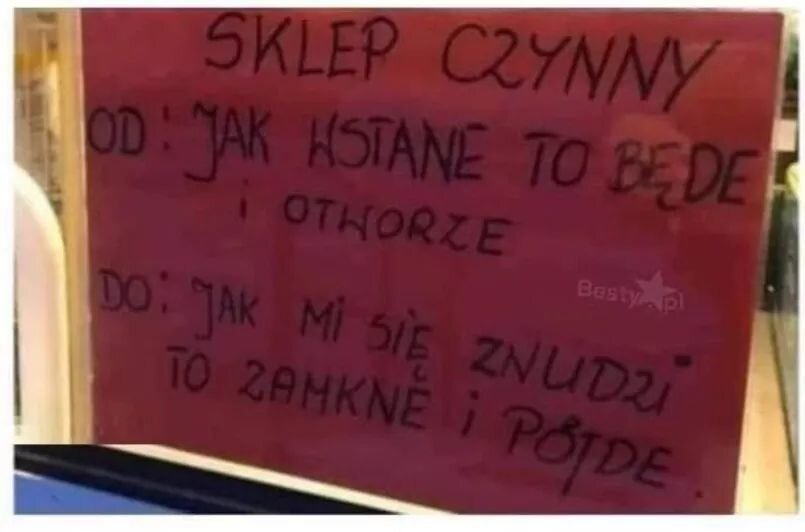 SKLEP CZYNNY
OD: JAK WSTANE TO BĘDE
i OTWORZE
DO: JAK MI SIĘ ZNUDZI
TO ZAMKNE i PÓJDE.
Besty.pl